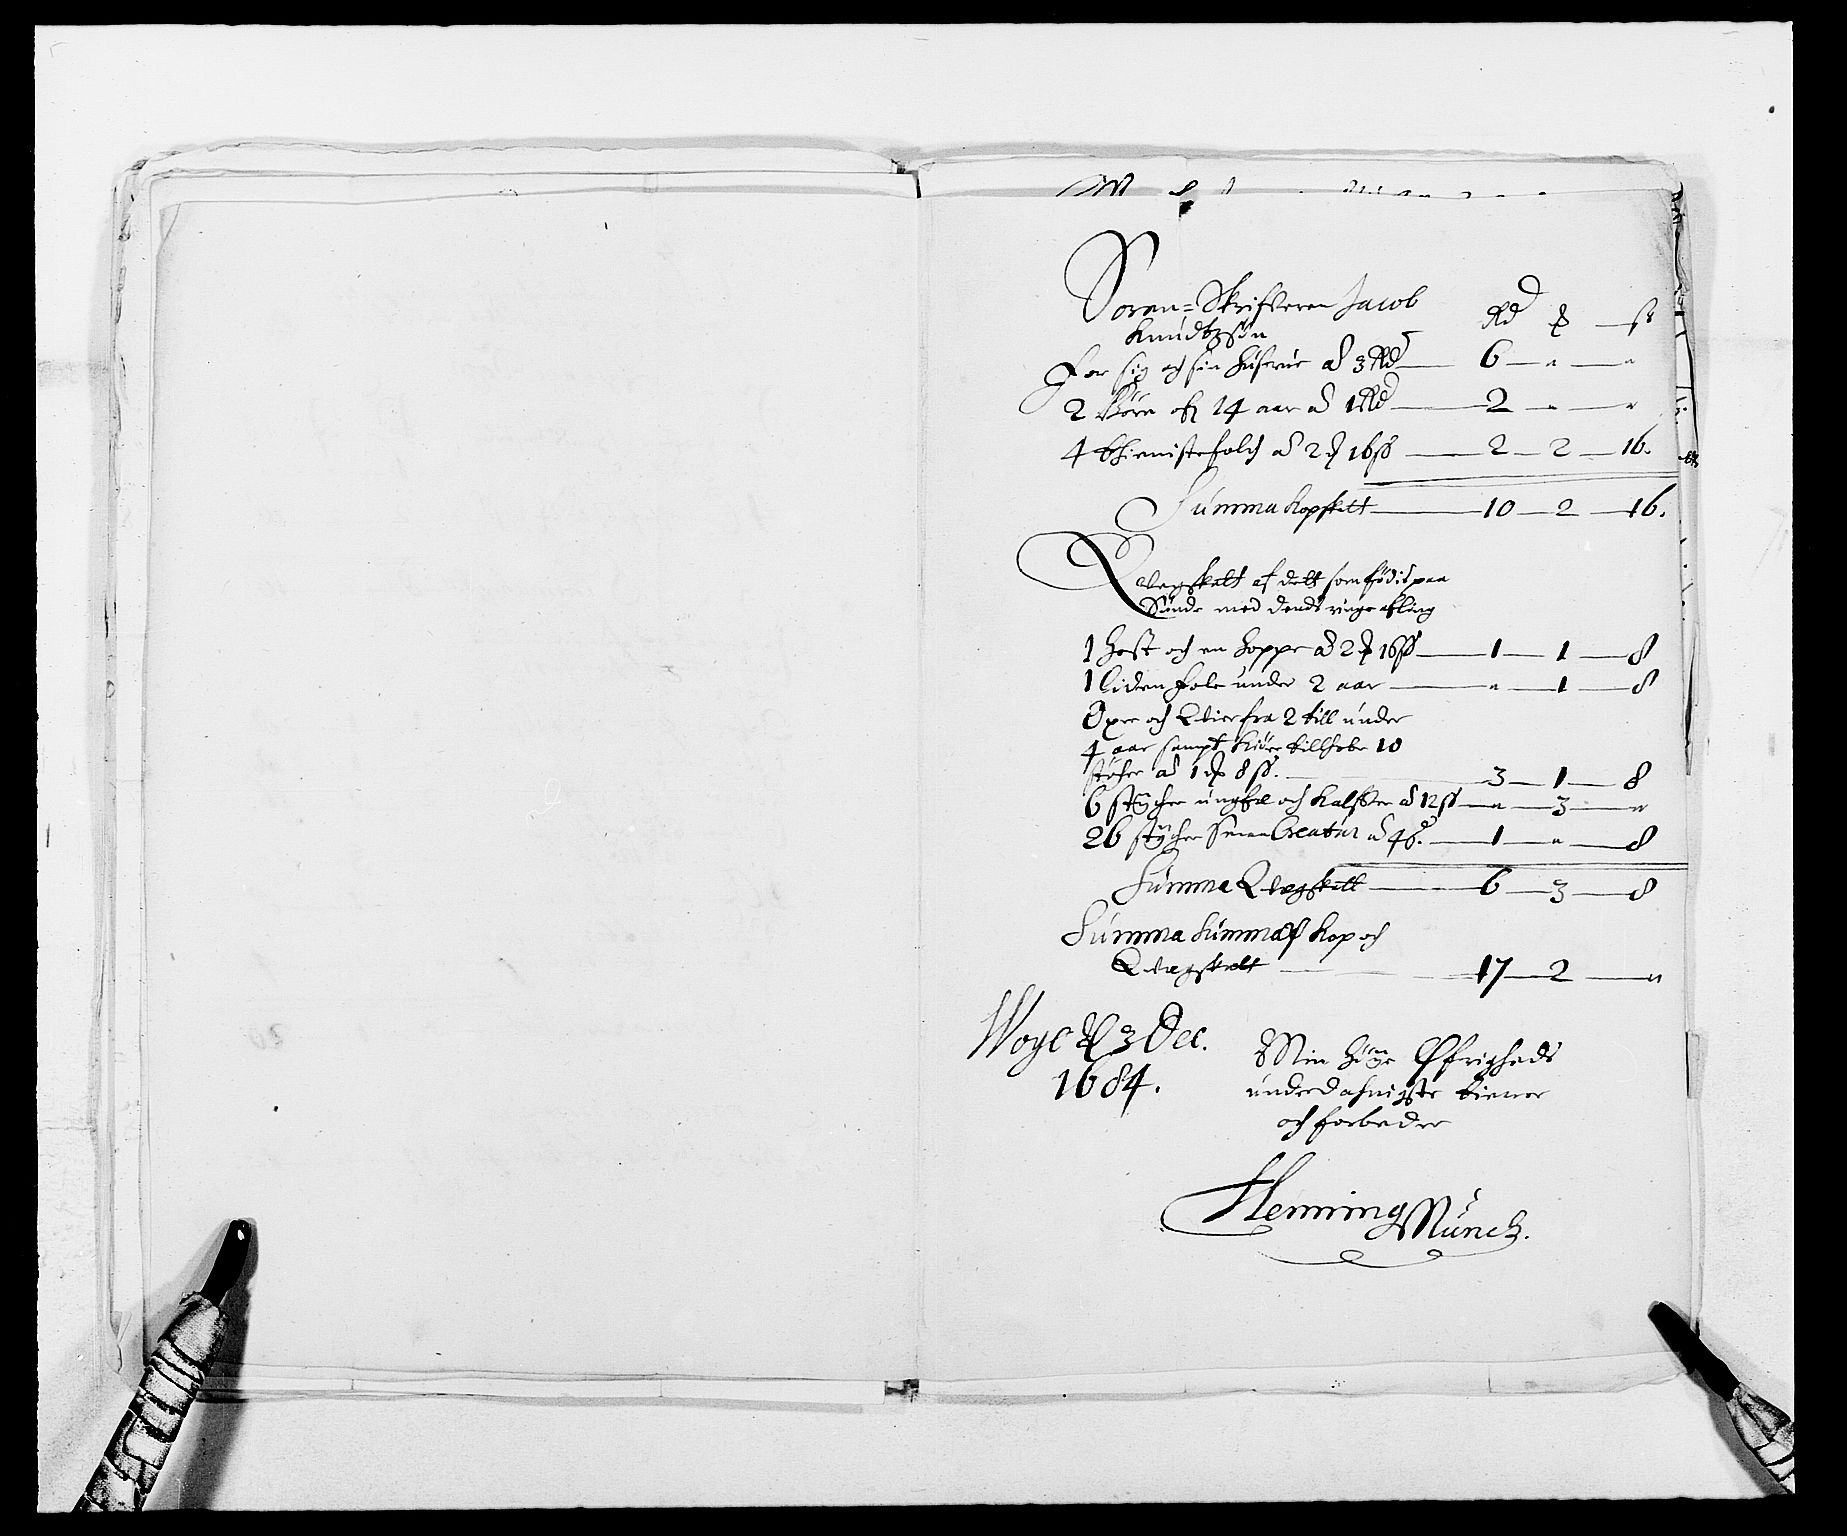 Soren-Skrifveren Jacob
Knudtzsøn Rd ß
For sig och sin hustrue ad 3 Rd 6 " "
2 børn ofr 14 aar ad 1 Rd 2 " "
4 thienistefolch ad 2 16 ß 2 2 16.
Summa Kopskatt 10 2 16.
Qvegskatt af dett som fødis paa
Sunde med dends ringe afling
1 hest och en hoppe ad 2 16 ß 1 1 8
1 liden fole under 2 aar " 1 8
Øxne och Qvier fra 2 till under
4 aar sampt Kiør tillhobe 10
stycher ad 1 8 ß. 3 1 8
6 stycher ungfæ och Kalfve ad 12 ß " 3 "
26 stycher Smaa Creatur ad 4 ß. 1 " 8
Summa Qvegskatt 6 3 8
Summa Summar Kop och
Qvægskatt 17 2 "
3 Dec.
1684.
Min høye Øfrigheds
underdahnigste tiener
och forbeder
Henning Münch.